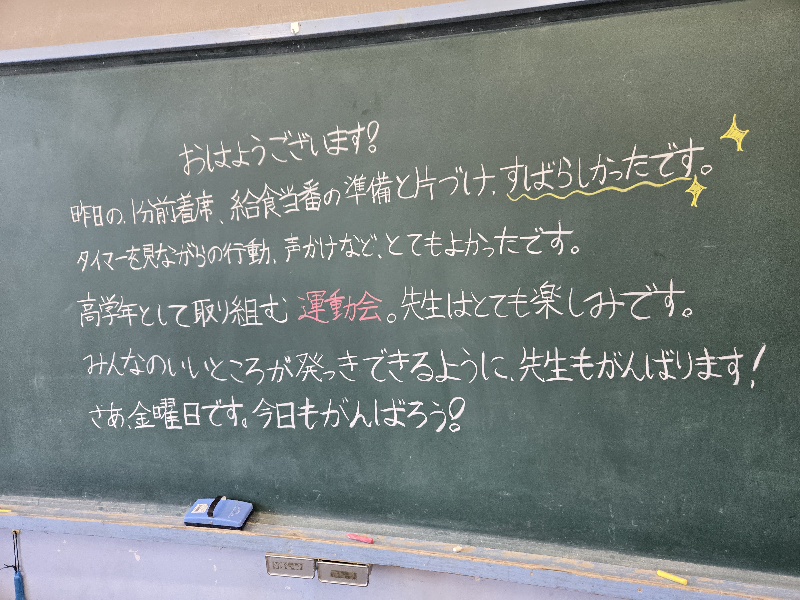 おはようございます!
昨日の、1分前着席、給食当番の準備と片づけ、すばらしかったです。
タイマーを見ながらの行動、声かけなど、とてもよかったです。
高学年として取り組む 運動会。先生はとても楽しみです。
みんなのいいところが発っきできるように、先生もがんばります!
さあ、金曜日です。今日もがんばろう!